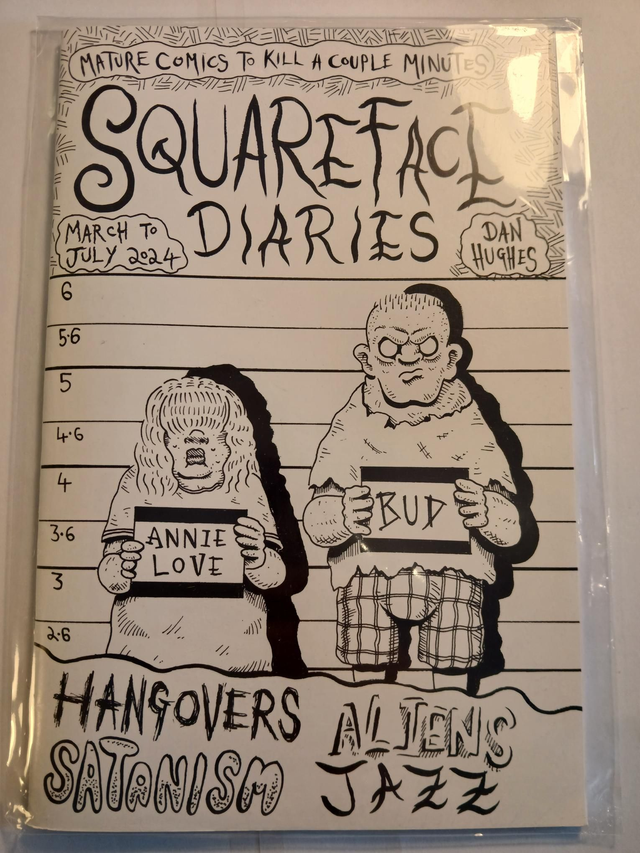 MATURE COMICS TO KILL A COUPLE MINUTES
SQUAREFACE
DIARIES
MARCH TO
JULY 2024
DAN
HUGHES
6
5·6
5
4·6
4
3·6
3
2·6
ANNIE
LOVE
BUD
HANGOVERS
SATANISM
ALIENS
JAZZ